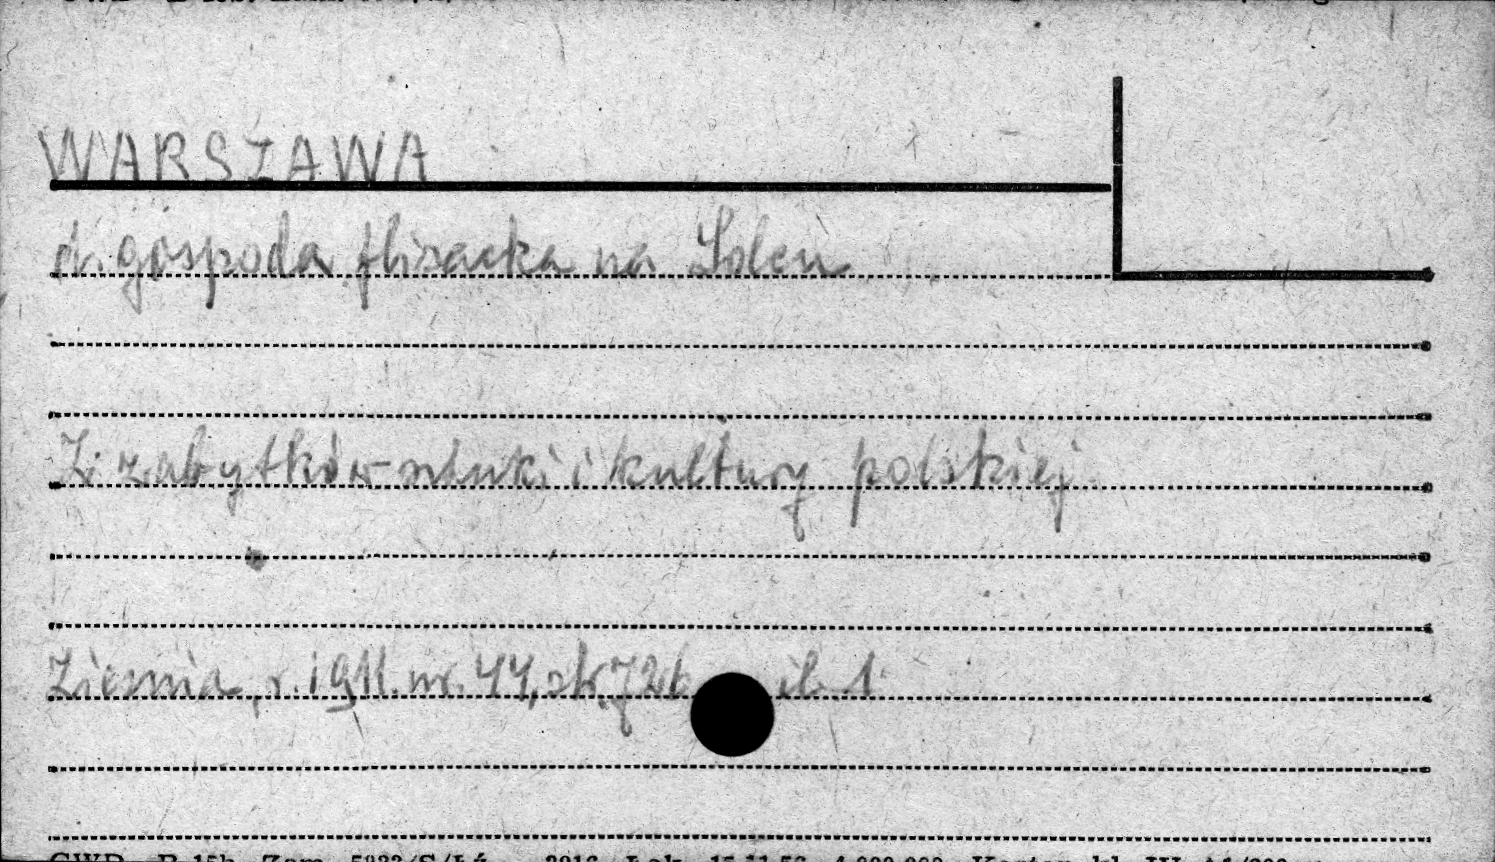 WARSZAWA
d. gospoda flisacka na Solcu
Z zabytków sztuki i kultury polskiej
Ziemia, r. 1911. nr. 44, str. 726 il. 1